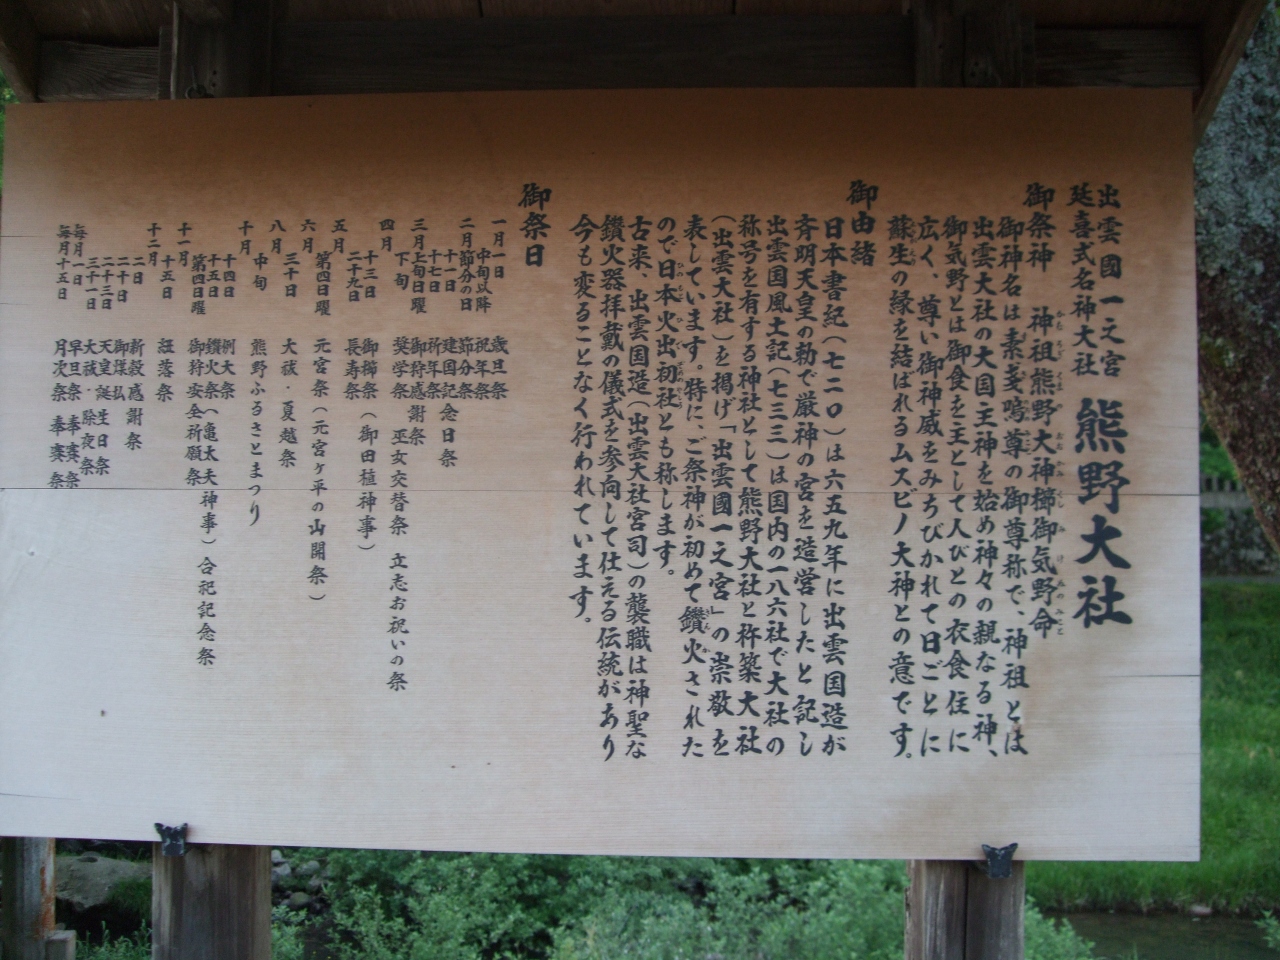 出雲國一之宮
延喜式名神大社
熊野大社
御祭神　神祖熊野大神櫛御気野命
御神名は素戔嗚尊の御尊称で、神祖とは
出雲大社の大国主神を始め神々の親なる神、
御気野とは御食を主として人びとの衣食住に
広く、尊い御神威をみちびかれて日ごとに
蘇生の縁を結はれるムスビノ大神との意です。
御由緒
日本書紀(七二〇)は六五九年に出雲国造が
斉明天皇の勅で厳神の宮を造営したと記し
出雲国風土記(七三三)は国内の一八六社で大社の
称号を有する神社として熊野大社と杵築大社
(出雲大社)を掲げ「出雲國一之宮」の崇敬を
表しています。特に、ご祭神が初めて鑽火された
ので日本火出初社とも称します。
古来、出雲国造(出雲大社宮司)の襲職は神聖な
鑽火器拝戴の儀式を参向して仕える伝統があり
今も変ることなく行われています。
御祭日
一月一日　歳旦祭
中旬以降　祝年祭
二月節分の日　節分祭
十一日　建国記念日祭
十七日　祈年祭
三月上旬日曜　御狩感謝祭
下旬　奨学祭　巫女交替祭　立志お祝いの祭
四月十三日　御櫛祭(御田植神事)
二十九日　長寿祭
五月第四日曜　元宮祭(元宮ヶ平の山開祭)
六月三十日　大祓・夏越祭
八月中旬　熊野ふるさとまつり
十月十四日　例大祭
十五日　鑽火祭(亀太夫神事)　合祀記念祭
第四日曜　御狩安全祈願祭
十一月十五日　紐落祭
十二月二日　新穀感謝祭
二十日　御煤払
二十三日　天皇誕生日祭
三十一日　大祓・除夜祭
毎月一日　早旦祭　奉賽祭
毎月十五日　月次祭　奉賽祭